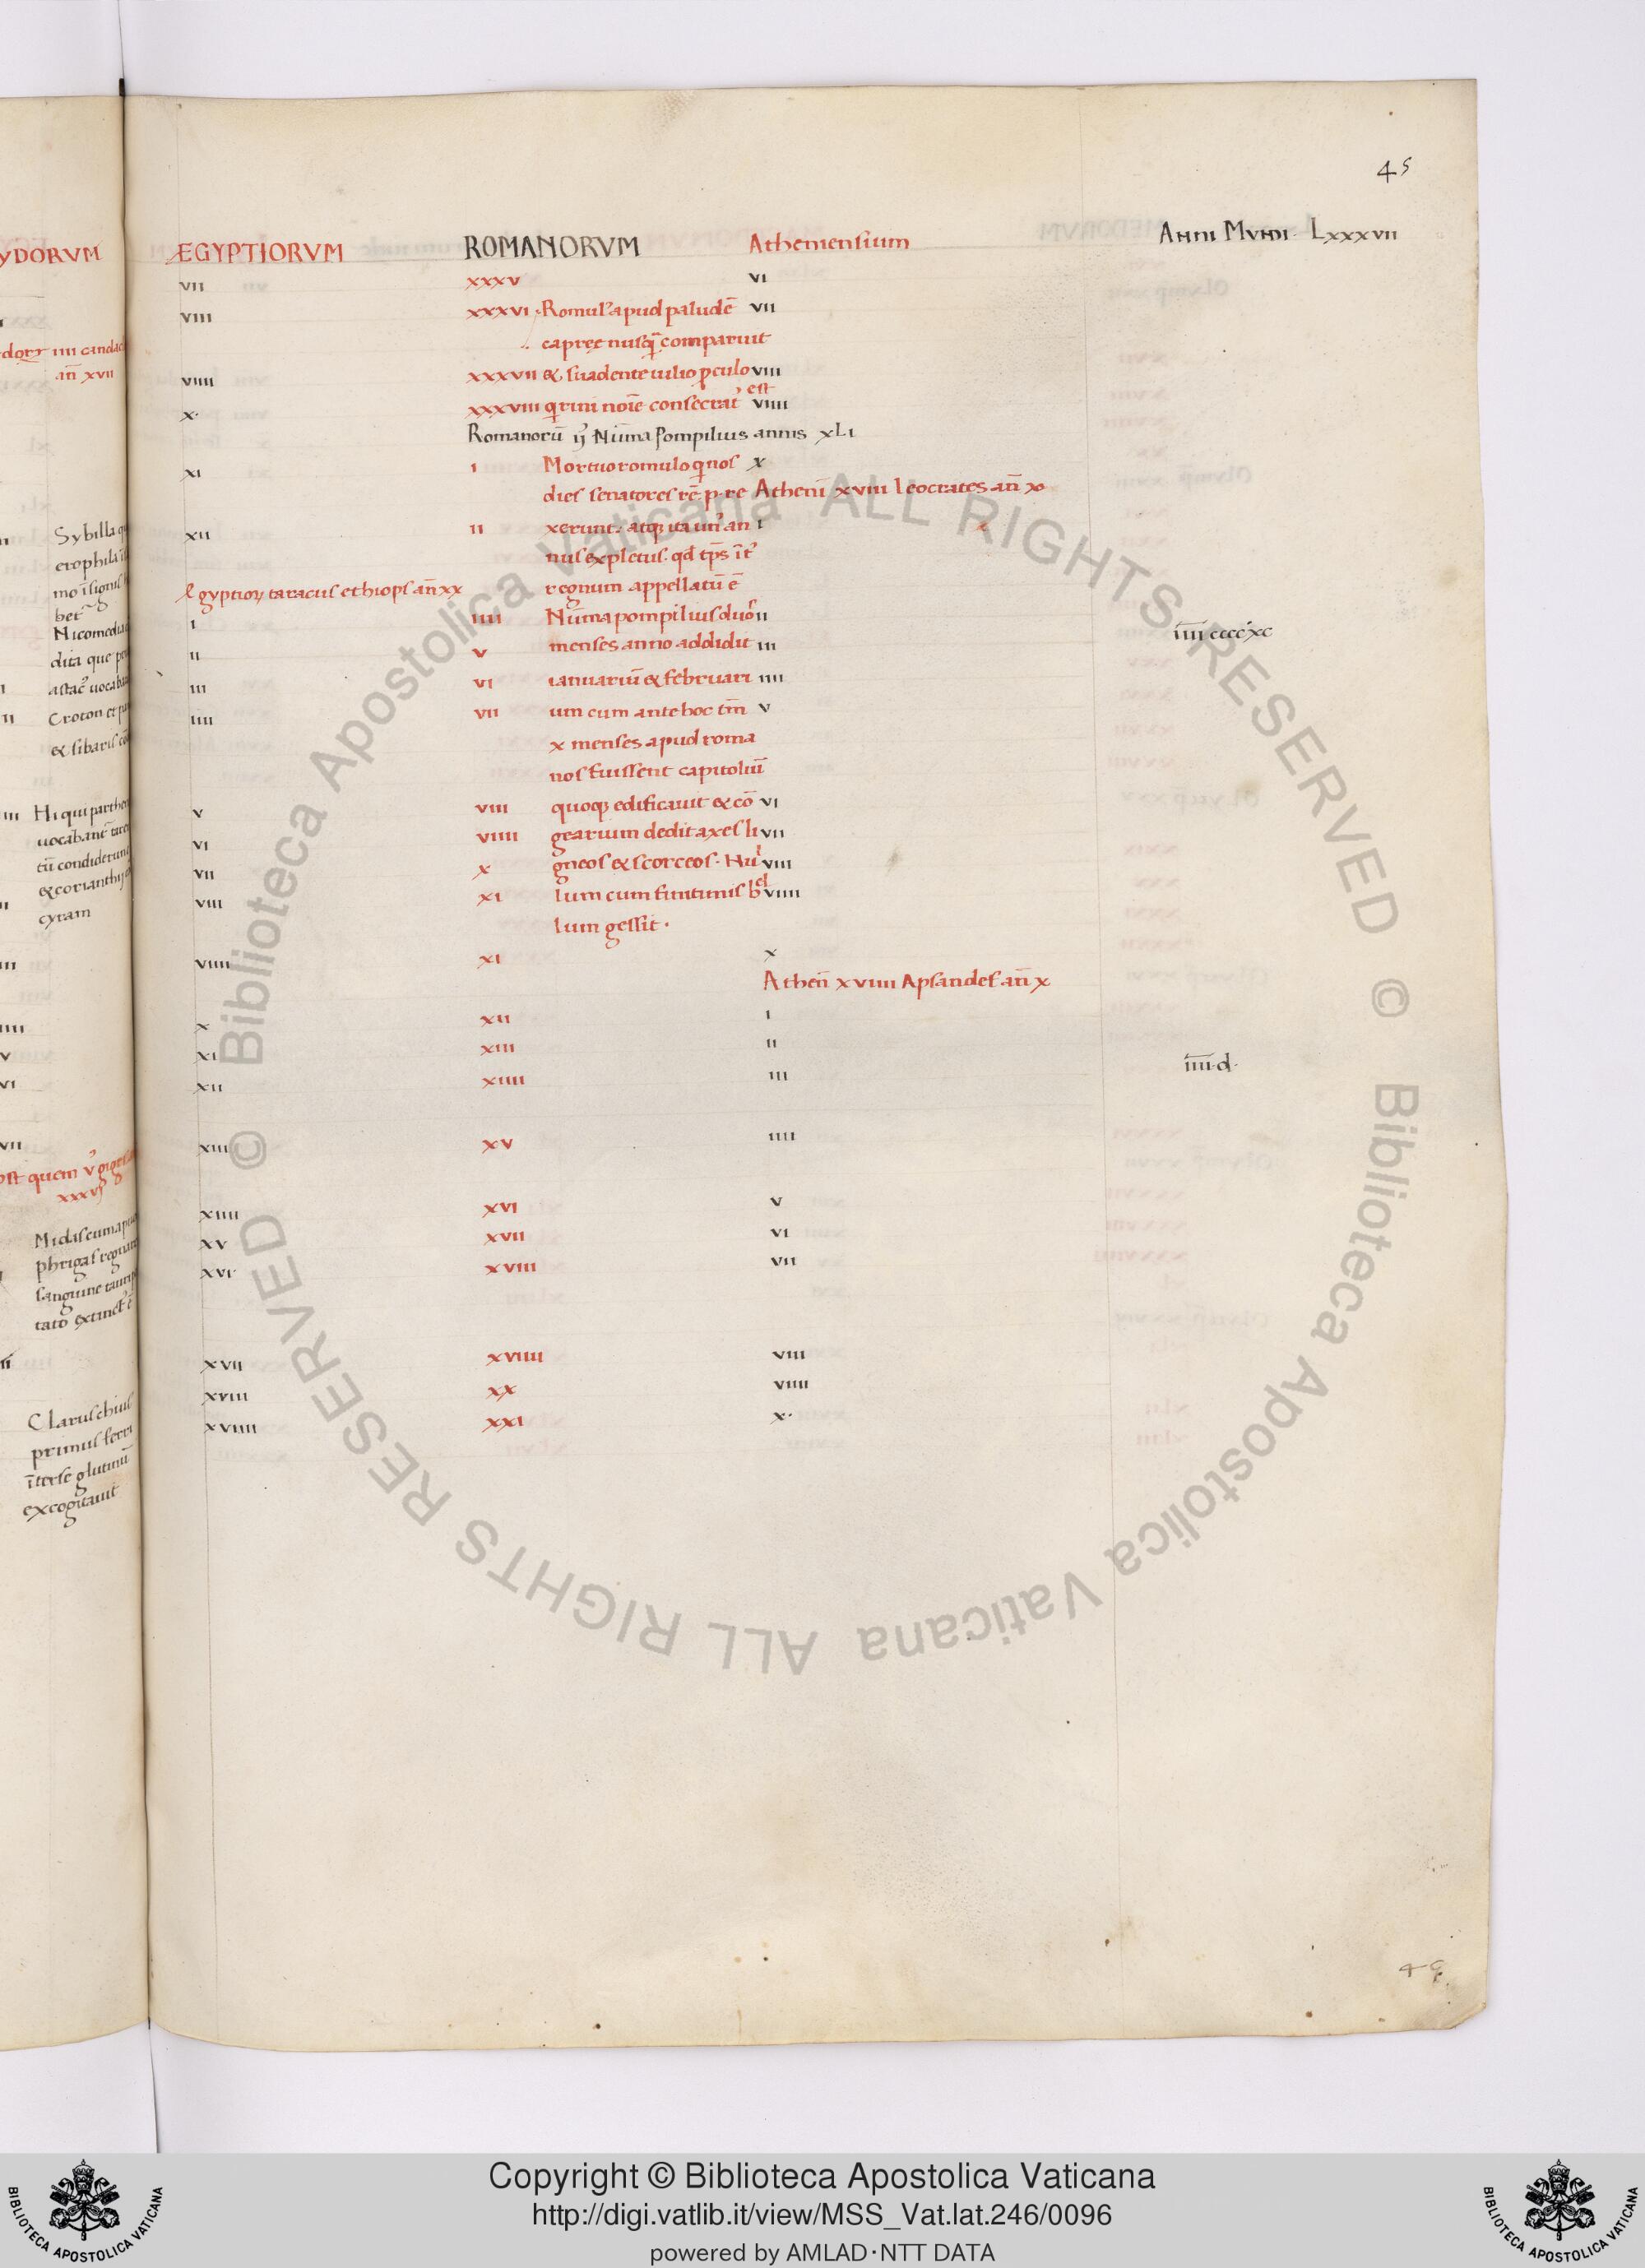 45
YDORVM ÆGYPTIORVM ROMANORVM Atheniensium Anni Mundi Lxxxvii
vii xxxv vi
viii xxxvi Romul᾽ apud paludē vii
capreę nusq̄ comparuit
viiii xxxvii & suadente iulio ꝓculo viii
x· xxxviii qͥrini noīe consecrat᾽ est viiii
Romanorū ij᾽ Numa Pompilius annis xLi
xi i Mortuo romulo qͥnos x
dies senatores rē p· re Athenī xviii Leocrates an̄ x
xii ii xerunt· atq; ita un᾽ an i
nus expletus· qd̄ tp̄s īt᾽
Ægyptioꝝ taracus ethiops an̄ xx regnum appellatū ē
i iiii Numa pompilius duos ii
ii v menses anno addidit iii
iii vi ianuariū & februari iiii
iiii vii um cum ante hoc tm̄ v
x menses apud roma
nos fuissent capitoliū
v viii quoq; edificauit & cō vi
vi viiii gearium dedit axes li vii
vii x gneos & scorceos· Nul viii
viii xi lum cum finitimis bel viiii
lum gessit·
viiii xi x
Athen̄ xviiii Apsandes an̄ x
x xii i
xi xiii ii
xii xiiii iii
xiii xv iiii
xiiii xvi v
xv xvii vi
xvi xviii vii
xvii xviiii viii
xviii xx viiii
xviiii xxi x·
i̅i̅i̅i̅ cccc xc
i̅i̅i̅i̅·d·
iiii candac
an̄ xvii
Sybilla
erophila
Nicomedia
dita que
Croton et
& sibaris
Hi qui parthen
condiderunt
cyram
ost quem
xxxvj
Midas cum apud
phrigas regnaret
sanguine tauri
Clarus chius
primus ferri
īter se glutinū
excogitauit
© Biblioteca Apostolica Vaticana ALL RIGHTS RESERVED © Biblioteca Apostolica Vaticana ALL RIGHTS RESERVED
Copyright © Biblioteca Apostolica Vaticana
http://digi.vatlib.it/view/MSS_Vat.lat.246/0096
powered by AMLAD·NTT DATA
BIBLIOTECA APOSTOLICA VATICANA
BIBLIOTECA APOSTOLICA VATICANA